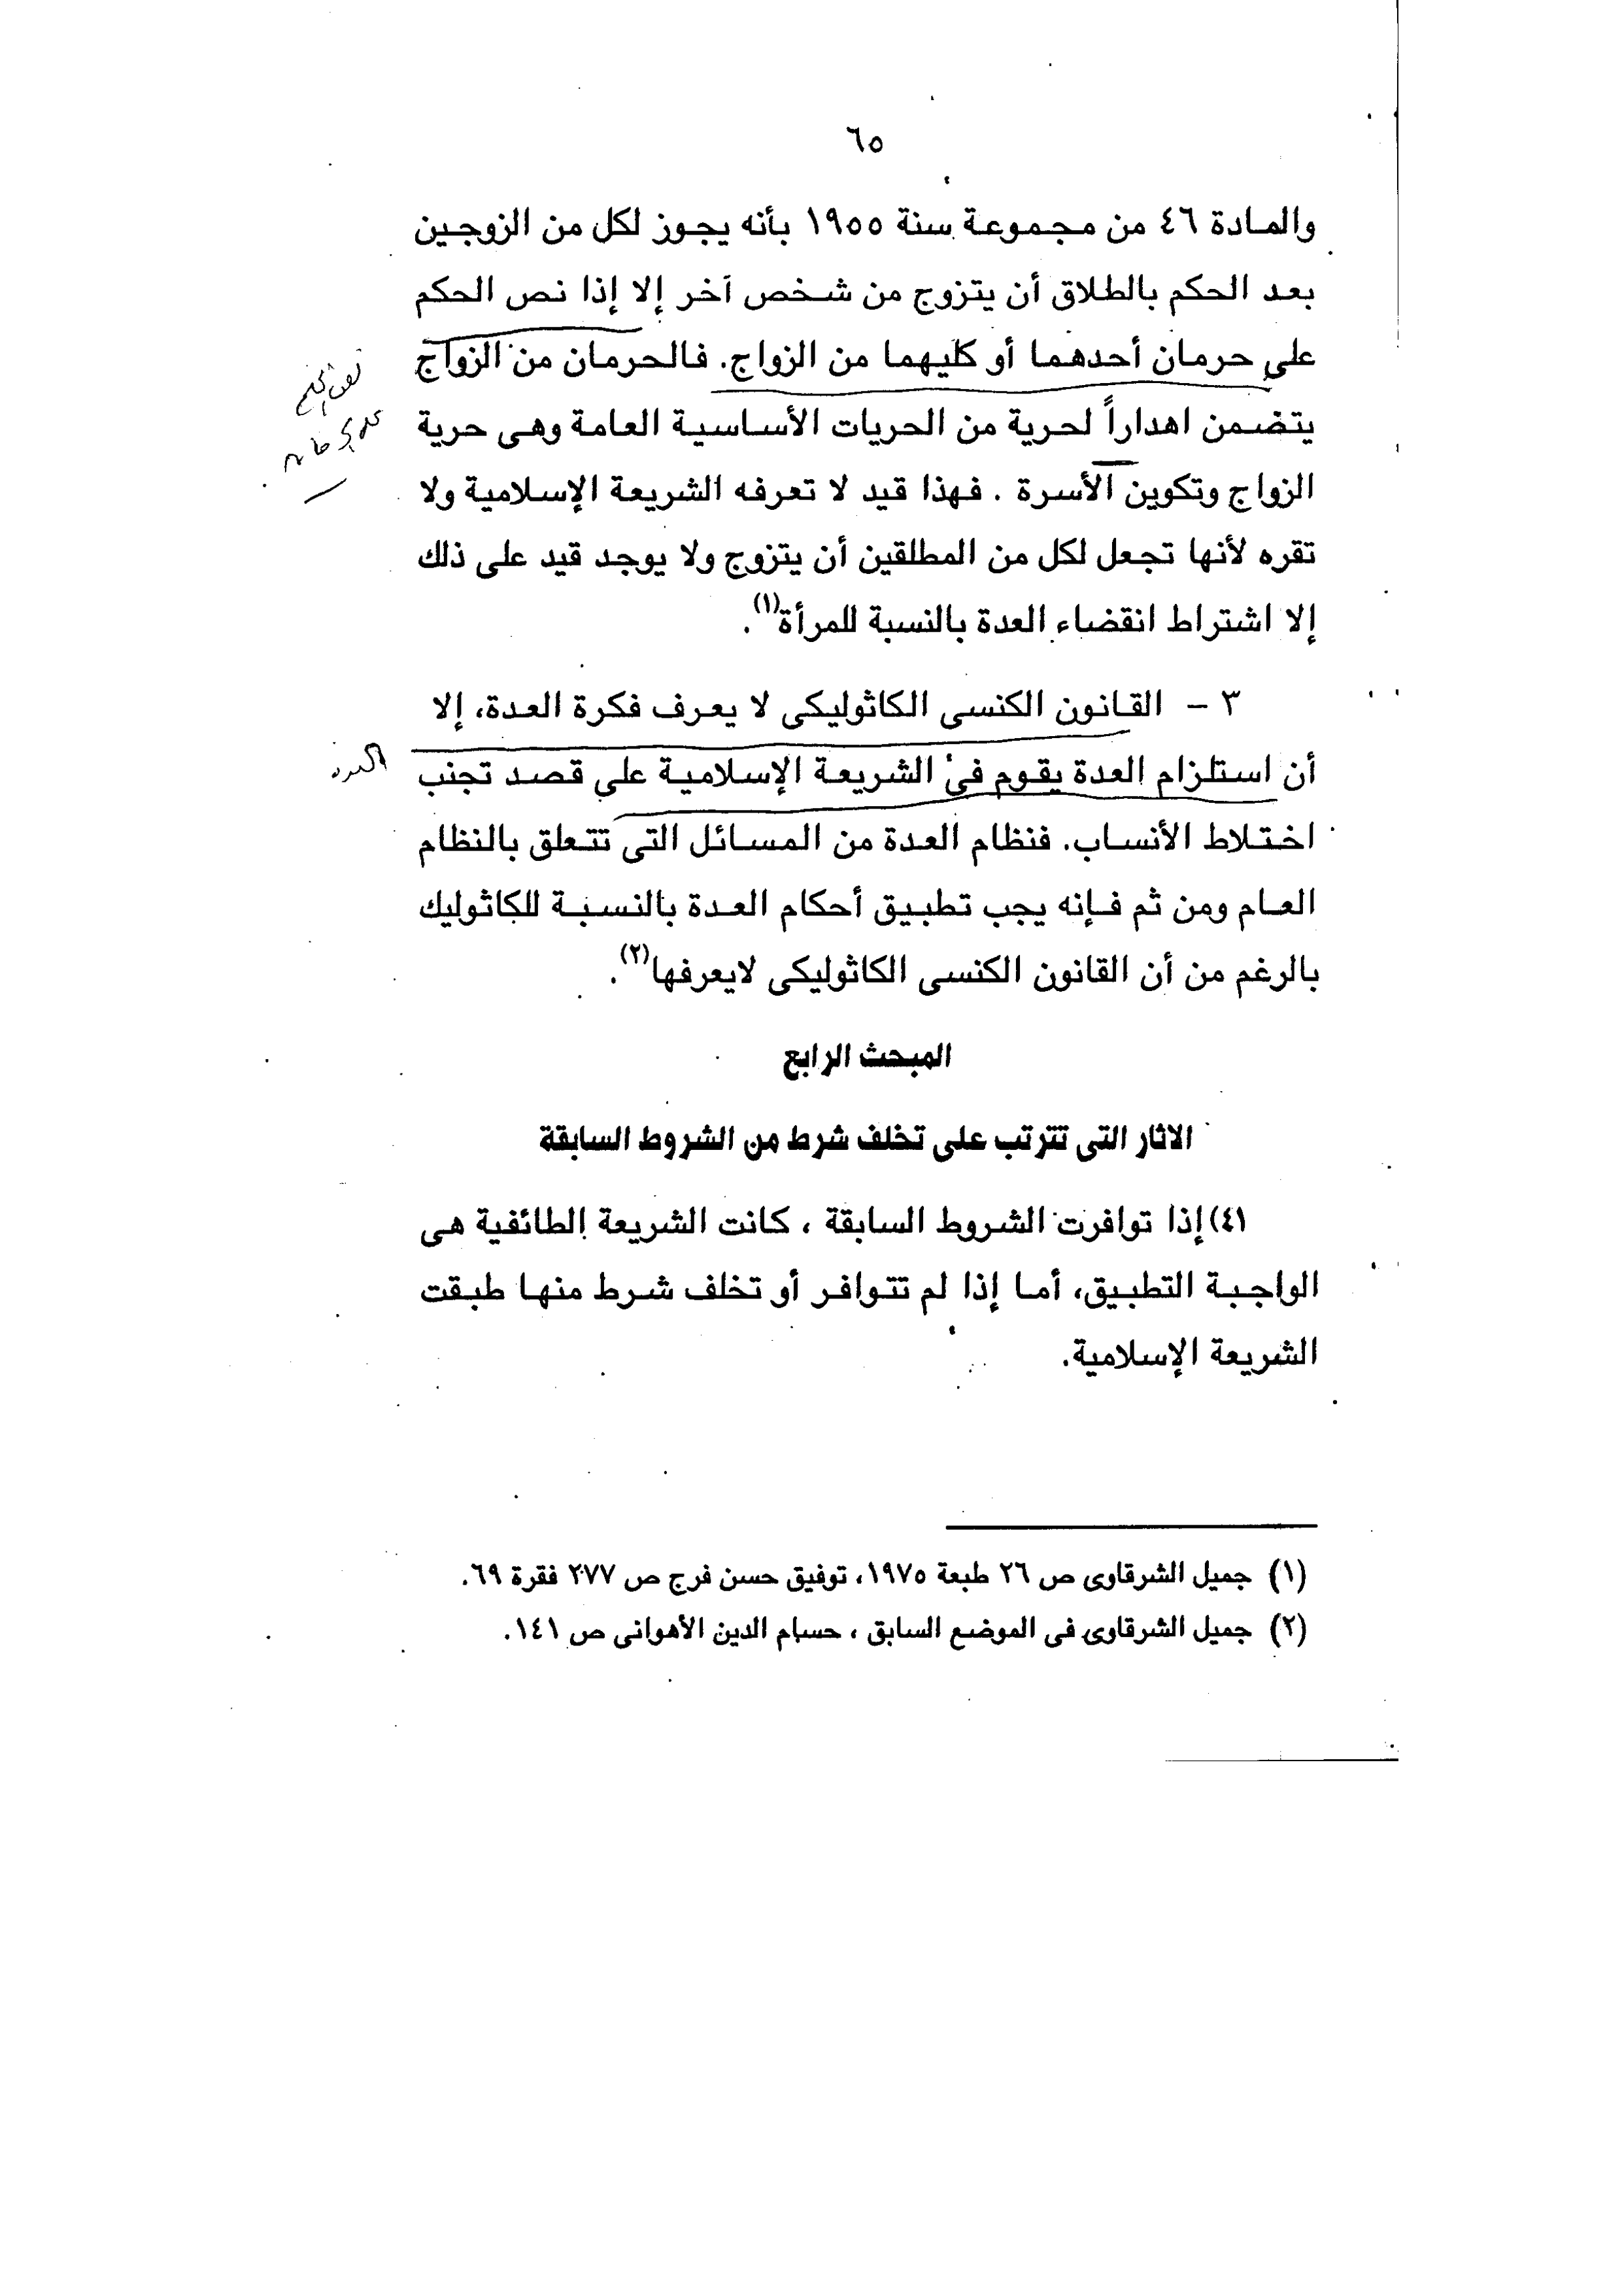 ٦٥
والمادة ٤٦ من مجموعة سنة ١٩٥٥ بأنه يجوز لكل من الزوجين
بعد الحكم بالطلاق أن يتزوج من شخص آخر إلا إذا نص الحكم
على حرمان أحدهما أو كليهما من الزواج. فالحرمان من الزواج
يتضمن اهداراً لحرية من الحريات الأساسية العامة وهى حرية
الزواج وتكوين الأسرة . فهذا قيد لا تعرفه الشريعة الإسلامية ولا
تقره لأنها تجعل لكل من المطلقين أن يتزوج ولا يوجد قيد على ذلك
إلا اشتراط انقضاء العدة بالنسبة للمرأة(١).
٣ - القانون الكنسى الكاثوليكى لا يعرف فكرة العدة، إلا
أن استلزام العدة يقوم فى الشريعة الإسلامية على قصد تجنب
اختلاط الأنساب. فنظام العدة من المسائل التى تتعلق بالنظام
العام ومن ثم فإنه يجب تطبيق أحكام العدة بالنسبة للكاثوليك
بالرغم من أن القانون الكنسى الكاثوليكى لايعرفها(٢).
المبحث الرابع
الاثار التى تترتب على تخلف شرط من الشروط السابقة
٤١) إذا توافرت الشروط السابقة ، كانت الشريعة الطائفية هى
الواجبة التطبيق، أما إذا لم تتوافر أو تخلف شرط منها طبقت
الشريعة الإسلامية.
(١) جميل الشرقاوى ص ٢٦ طبعة ١٩٧٥، توفيق حسن فرج ص ٢٧٧ فقرة ٦٩.
(٢) جميل الشرقاوى فى الموضع السابق ، حسام الدين الأهوانى ص ١٤١.